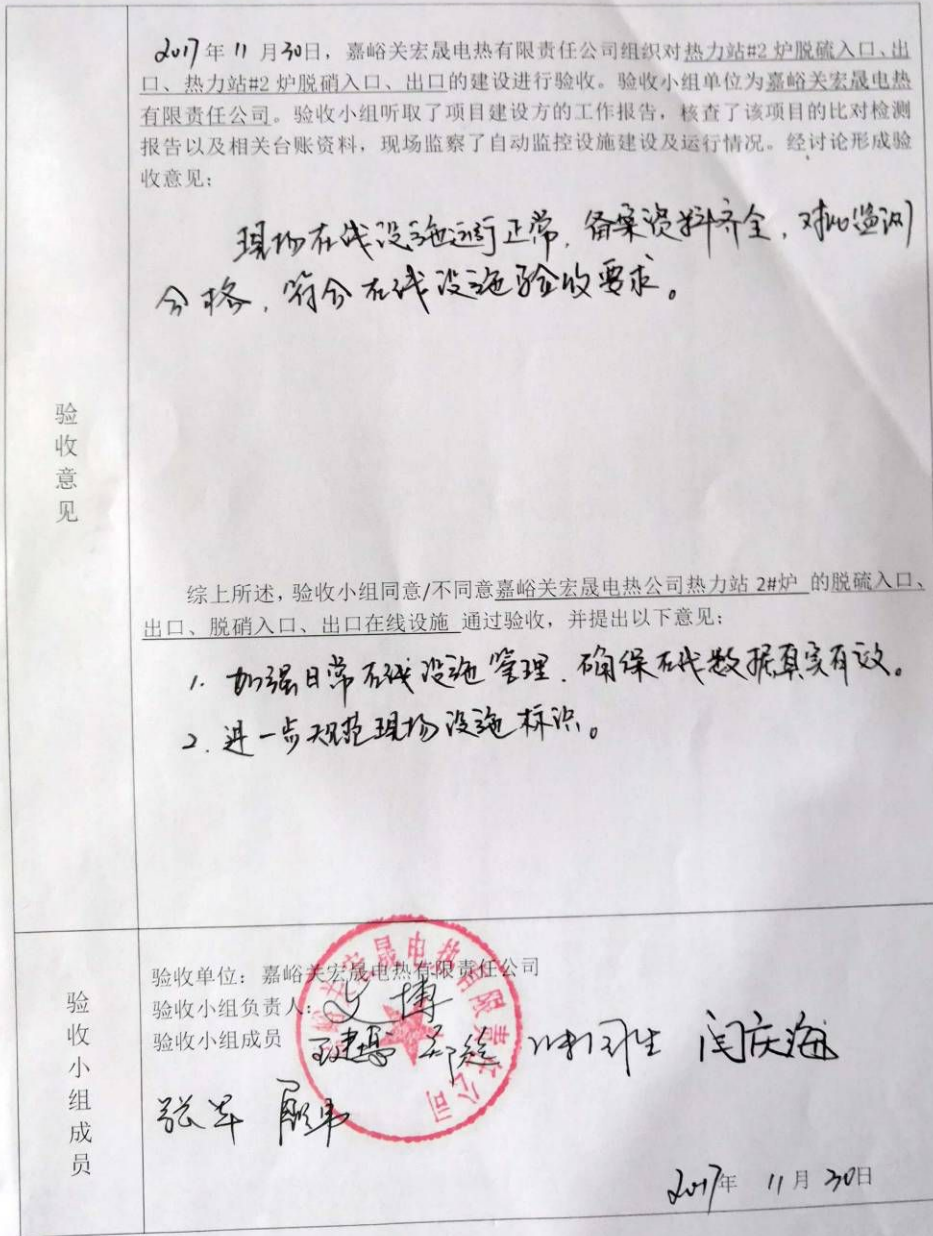 2017年11月30日，嘉峪关宏晟电热有限责任公司组织对热力站#2炉脱硫入口、出
口、热力站#2炉脱硝入口、出口的建设进行验收。验收小组单位为嘉峪关宏晟电热
有限责任公司。验收小组听取了项目建设方的工作报告，核查了该项目的比对检测
报告以及相关台账资料，现场监察了自动监控设施建设及运行情况。经讨论形成验
收意见：
现场在线设施运行正常，备案资料齐全，对比监测
合格，符合在线设施验收要求。
验收意见
综上所述，验收小组同意/不同意嘉峪关宏晟电热公司热力站 2#炉 的脱硫入口、
出口、脱硝入口、出口在线设施 通过验收，并提出以下意见：
1. 加强日常在线设施管理，确保在线数据真实有效。
2. 进一步规范现场设施标识。
验收小组成员
验收单位：嘉峪关宏晟电热有限责任公司
验收小组负责人：
验收小组成员 闫庆海
张军
嘉峪关宏晟电热有限责任公司
2017年 11月30日